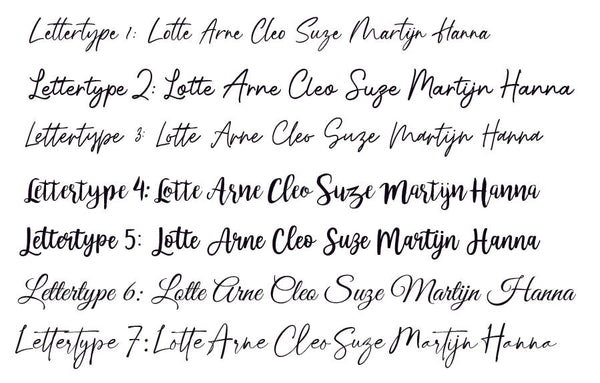 Lettertype 1: Lotte Arne Cleo Suze Martijn Hanna
Lettertype 2: Lotte Arne Cleo Suze Martijn Hanna
Lettertype 3: Lotte Arne Cleo Suze Martijn Hanna
Lettertype 4: Lotte Arne Cleo Suze Martijn Hanna
Lettertype 5: Lotte Arne Cleo Suze Martijn Hanna
Lettertype 6: Lotte Arne Cleo Suze Martijn Hanna
Lettertype 7: Lotte Arne Cleo Suze Martijn Hanna